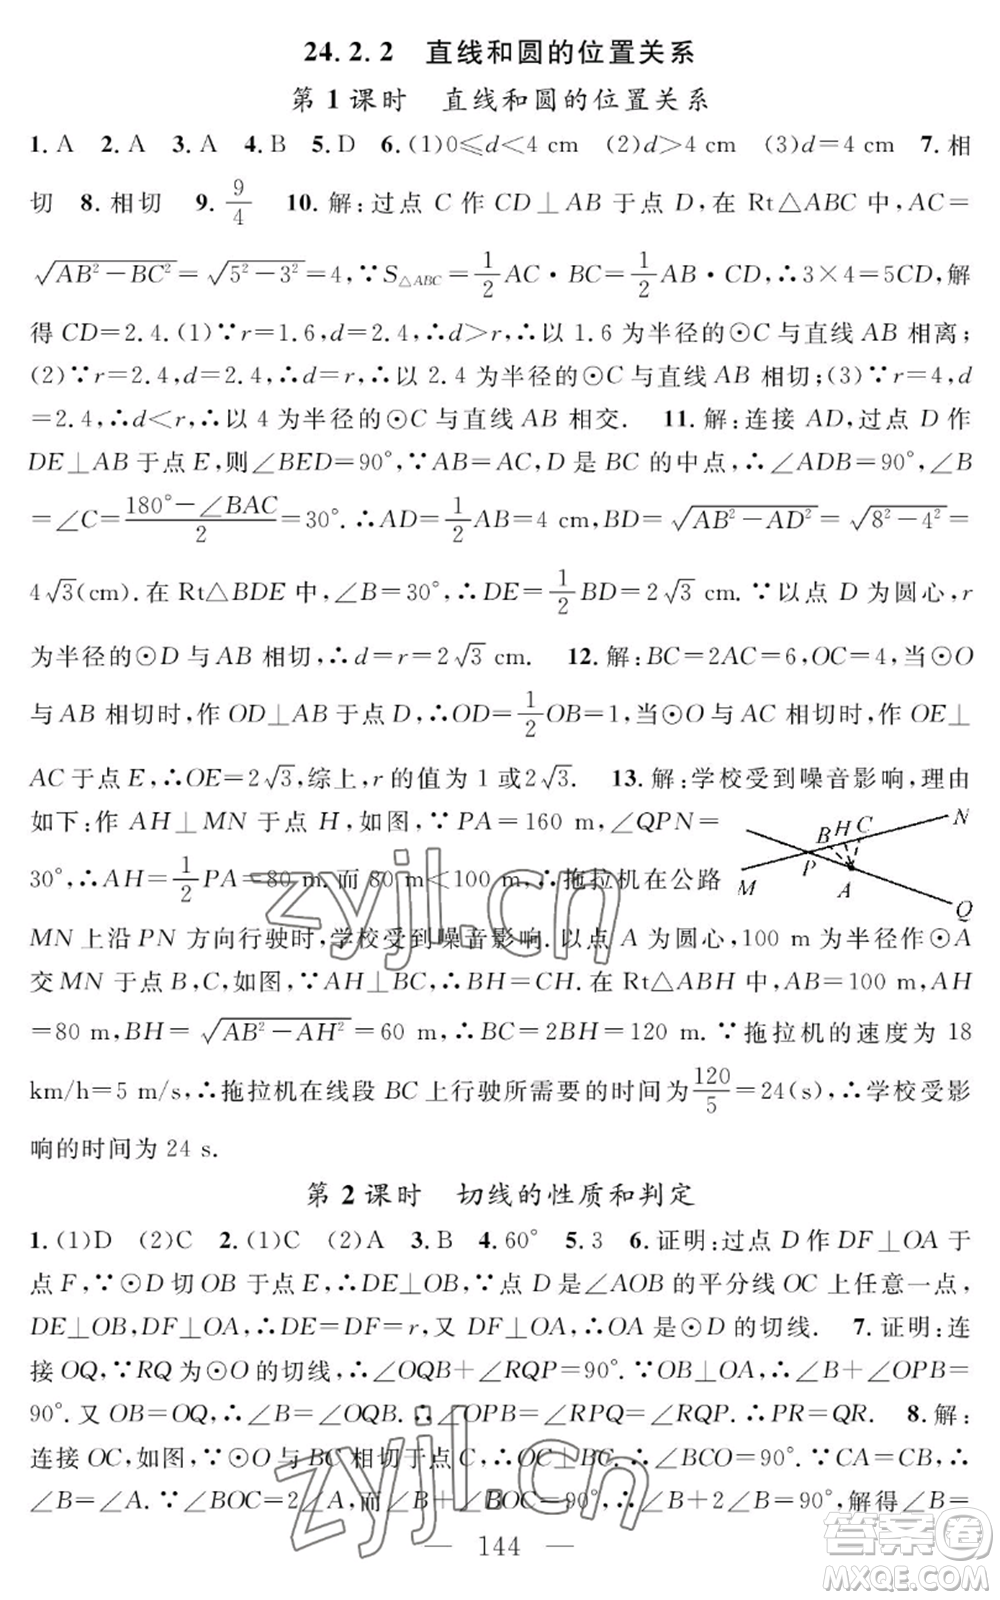 24.2.2 直线和圆的位置关系
第 1 课时 直线和圆的位置关系
1. A 2. A 3. A 4. B 5. D 6. (1)0≤d<4 cm (2)d>4 cm (3)d=4 cm 7. 相
切 8. 相切 9. 9/4 10. 解:过点 C 作 CD⊥AB 于点 D,在 Rt△ABC 中,AC=
√(AB²-BC²)=√(5²-3²)=4,∵S△ABC=1/2AC·BC=1/2AB·CD,∴3×4=5CD,解
得 CD=2.4.(1)∵r=1.6,d=2.4,∴d>r,∴以 1.6 为半径的⊙C 与直线 AB 相离;
(2)∵r=2.4,d=2.4,∴d=r,∴以 2.4 为半径的⊙C 与直线 AB 相切;(3)∵r=4,d
=2.4,∴d<r,∴以 4 为半径的⊙C 与直线 AB 相交. 11. 解:连接 AD,过点 D 作
DE⊥AB 于点 E,则∠BED=90°,∵AB=AC,D 是 BC 的中点,∴∠ADB=90°,∠B
=∠C=(180°-∠BAC)/2=30°.∴AD=1/2AB=4 cm,BD=√(AB²-AD²)=√(8²-4²)=
4√3(cm).在 Rt△BDE 中,∠B=30°,∴DE=1/2BD=2√3 cm.∵以点 D 为圆心,r
为半径的⊙D 与 AB 相切,∴d=r=2√3 cm. 12. 解:BC=2AC=6,OC=4,当⊙O
与 AB 相切时,作 OD⊥AB 于点 D,∴OD=1/2OB=1,当⊙O 与 AC 相切时,作 OE⊥
AC 于点 E,∴OE=2√3,综上,r 的值为 1 或2√3. 13. 解:学校受到噪音影响,理由
如下:作 AH⊥MN 于点 H,如图,∵PA=160 m,∠QPN=
30°,∴AH=1/2PA=80 m.而 80 m<100 m,∴拖拉机在公路
B H C N
M P A Q
MN 上沿 PN 方向行驶时,学校受到噪音影响.以点 A 为圆心,100 m 为半径作⊙A
交 MN 于点 B,C,如图,∵AH⊥BC,∴BH=CH.在 Rt△ABH 中,AB=100 m,AH
=80 m,BH=√(AB²-AH²)=60 m,∴BC=2BH=120 m.∵拖拉机的速度为 18
km/h=5 m/s,∴拖拉机在线段 BC 上行驶所需要的时间为120/5=24(s),∴学校受影
响的时间为 24 s.
第 2 课时 切线的性质和判定
1. (1)D (2)C 2. (1)C (2)A 3. B 4. 60° 5. 3 6. 证明:过点 D 作 DF⊥OA 于
点 F,∵⊙D 切 OB 于点 E,∴DE⊥OB,∵点 D 是∠AOB 的平分线 OC 上任意一点,
DE⊥OB,DF⊥OA,∴DE=DF=r,又 DF⊥OA,∴OA 是⊙D 的切线. 7. 证明:连
接 OQ,∵RQ 为⊙O 的切线,∴∠OQB+∠RQP=90°.∵OB⊥OA,∴∠B+∠OPB=
90°.又 OB=OQ,∴∠B=∠OQB.∴∠OPB=∠RPQ=∠RQP.∴PR=QR. 8. 解:
连接 OC,如图,∵⊙O 与 BC 相切于点 C,∴OC⊥BC.∴∠BCO=90°.∵CA=CB,∴
∠B=∠A.∵∠BOC=2∠A,而∠B+∠BOC=90°,∴∠B+2∠B=90°,解得∠B=
— 144 —
zyjl.cn
zyjl.cn
答案圈
MXQE.COM